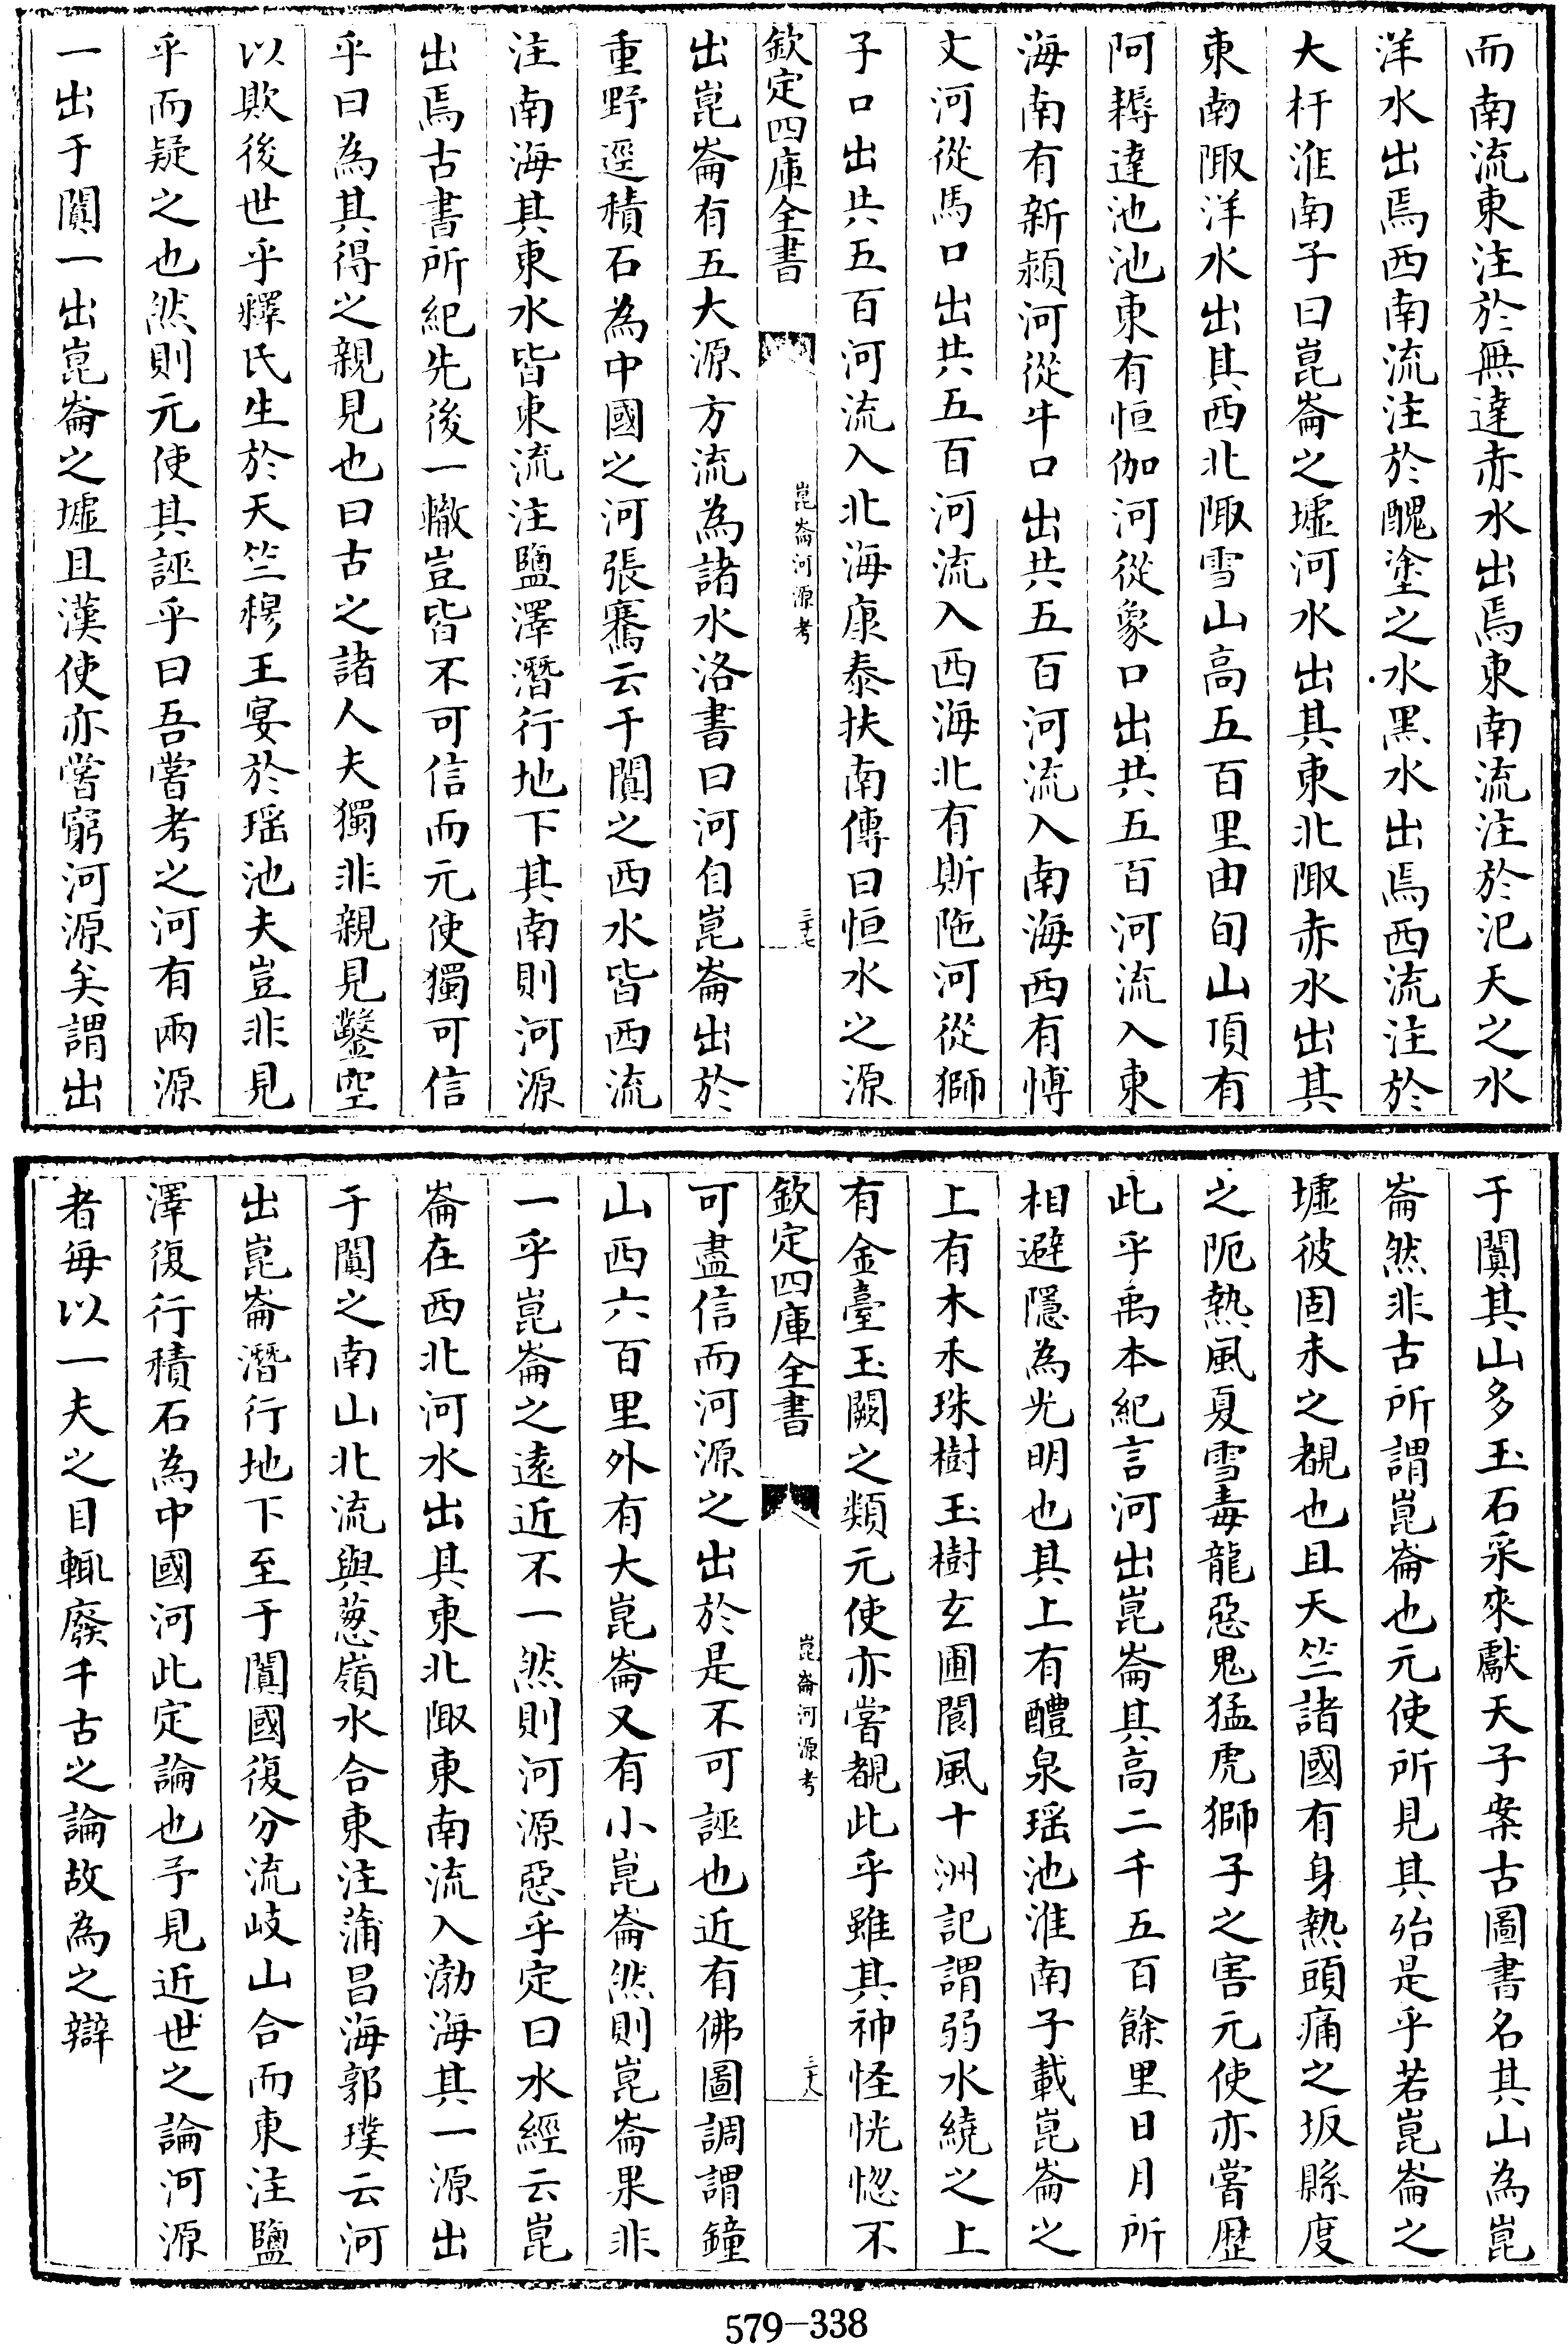 而南流東注於無達赤水出焉東南流注於汜天之水
洋水出焉西南流注於醜塗之水黑水出焉西流注於
大杅淮南子曰崑崙之墟河水出其東北陬赤水出其
東南陬洋水出其西北陬雪山高五百里由旬山頂有
阿耨達池池東有恒伽河從象口出共五百河流入東
海南有新頻河從牛口出共五百河流入南海西有愽
丈河從馬口出共五百河流入西海北有斯陁河從獅
子口出共五百河流入北海康泰扶南傳曰恒水之源
欽定四庫全書
崑崙河源考
三十七
出崑崙有五大源方流為諸水洛書曰河自崑崙出於
重野逕積石為中國之河張騫云于闐之西水皆西流
注南海其東水皆東流注鹽澤潛行地下其南則河源
出焉古書所紀先後一轍豈皆不可信而元使獨可信
乎曰為其得之親見也曰古之諸人夫獨非親見鑿空
以欺後世乎釋氏生於天竺穆王宴於瑶池夫豈非見
乎而疑之也然則元使其誣乎曰吾嘗考之河有兩源
一出于闐一出崑崙之墟且漢使亦嘗窮河源矣謂出
于闐其山多玉石采來獻天子案古圖書名其山為崑
崙然非古所謂崑崙也元使所見其殆是乎若崑崙之
墟彼固未之覩也且天竺諸國有身熱頭痛之坂縣度
之阨熱風夏雪毒龍惡鬼猛虎獅子之害元使亦嘗歴
此乎禹本紀言河出崑崙其高二千五百餘里日月所
相避隱為光明也其上有醴泉瑶池淮南子載崑崙之
上有木禾珠樹玉樹玄圃閬風十洲記謂弱水繞之上
有金臺玉闕之類元使亦嘗覩此乎雖其神怪恍惚不
欽定四庫全書
崑崙河源考
三十八
可盡信而河源之出於是不可誣也近有佛圖調謂鐘
山西六百里外有大崑崙又有小崑崙然則崑崙果非
一乎崑崙之遠近不一然則河源惡乎定曰水經云崑
崙在西北河水出其東北陬東南流入渤海其一源出
于闐之南山北流與葱嶺水合東注蒲昌海郭璞云河
出崑崙潛行地下至于闐國復分流岐山合而東注鹽
澤復行積石為中國河此定論也予見近世之論河源
者每以一夫之目輒廢千古之論故為之辯
579-338